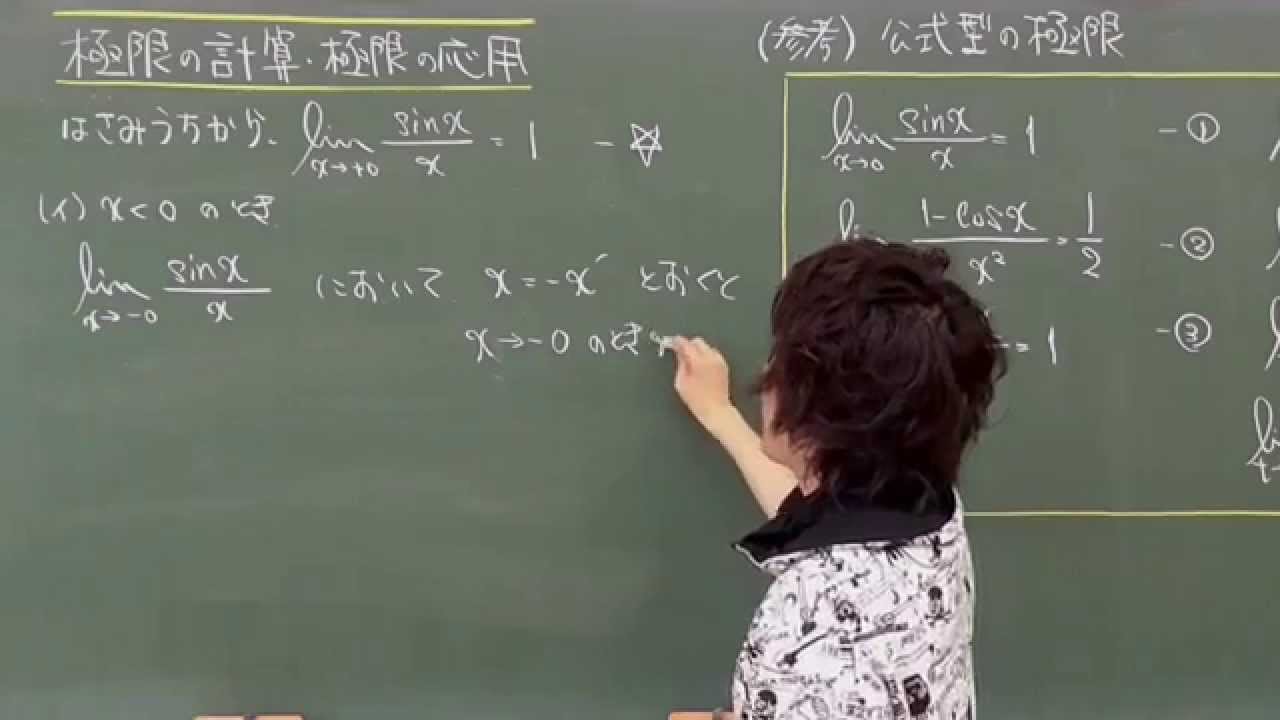 極限の計算・極限の応用
はさみうちから、lim x→+0 sinx/x = 1 －☆
(イ) x<0 のとき
lim x→-0 sinx/x において x=-x′ とおくと
x→-0 のとき x
(参考) 公式型の極限
lim x→0 sinx/x = 1 －①
1-cosx/x² = 1/2 －②
= 1 －③